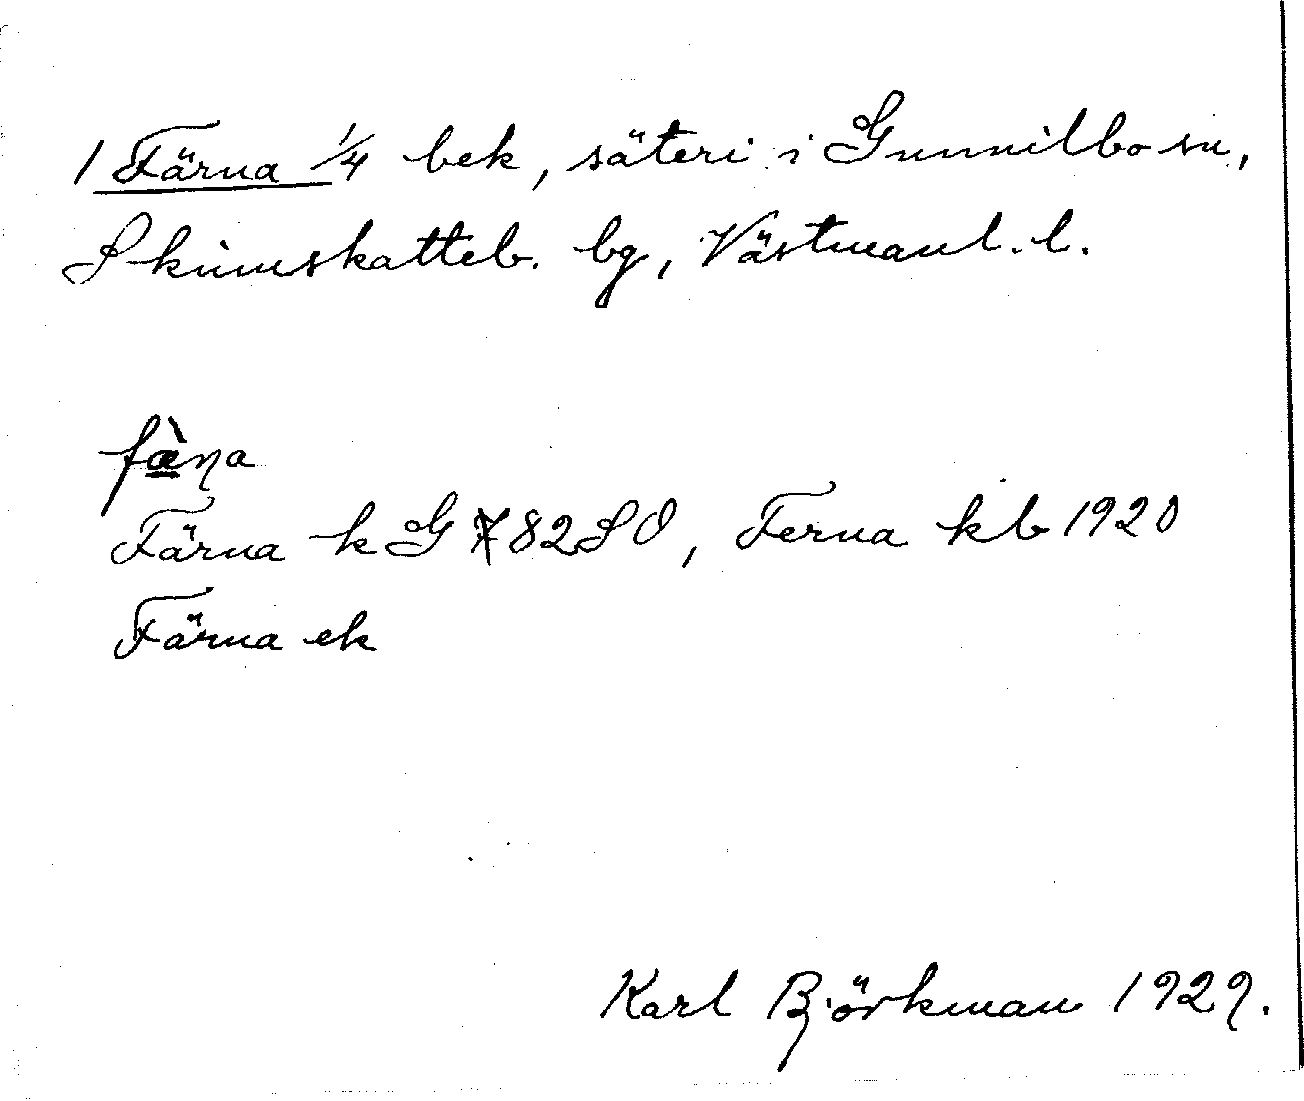 1 Färna 1/4 bek, säteri i Gunnilbo sn,
Skinnskatteb. bg, Västmanl. l.
fæ̀ɳa
Färna k G 782 SO, Ferna kb 1920
Färna ek
Karl Björkman 1929.